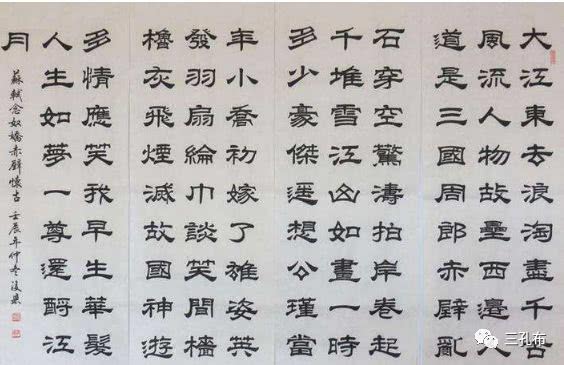 大江東去浪淘盡千古
風流人物故壘西邊人
道是三國周郎赤壁亂
石穿空驚濤拍岸卷起
千堆雪江山如畫一時
多少豪傑遙想公瑾當
年小喬初嫁了雄姿英
發羽扇綸巾談笑間檣
櫓灰飛煙滅故國神遊
多情應笑我早生華髮
人生如夢一尊還酹江
月
蘇軾念奴嬌赤壁懷古 壬辰年仲冬
三孔布